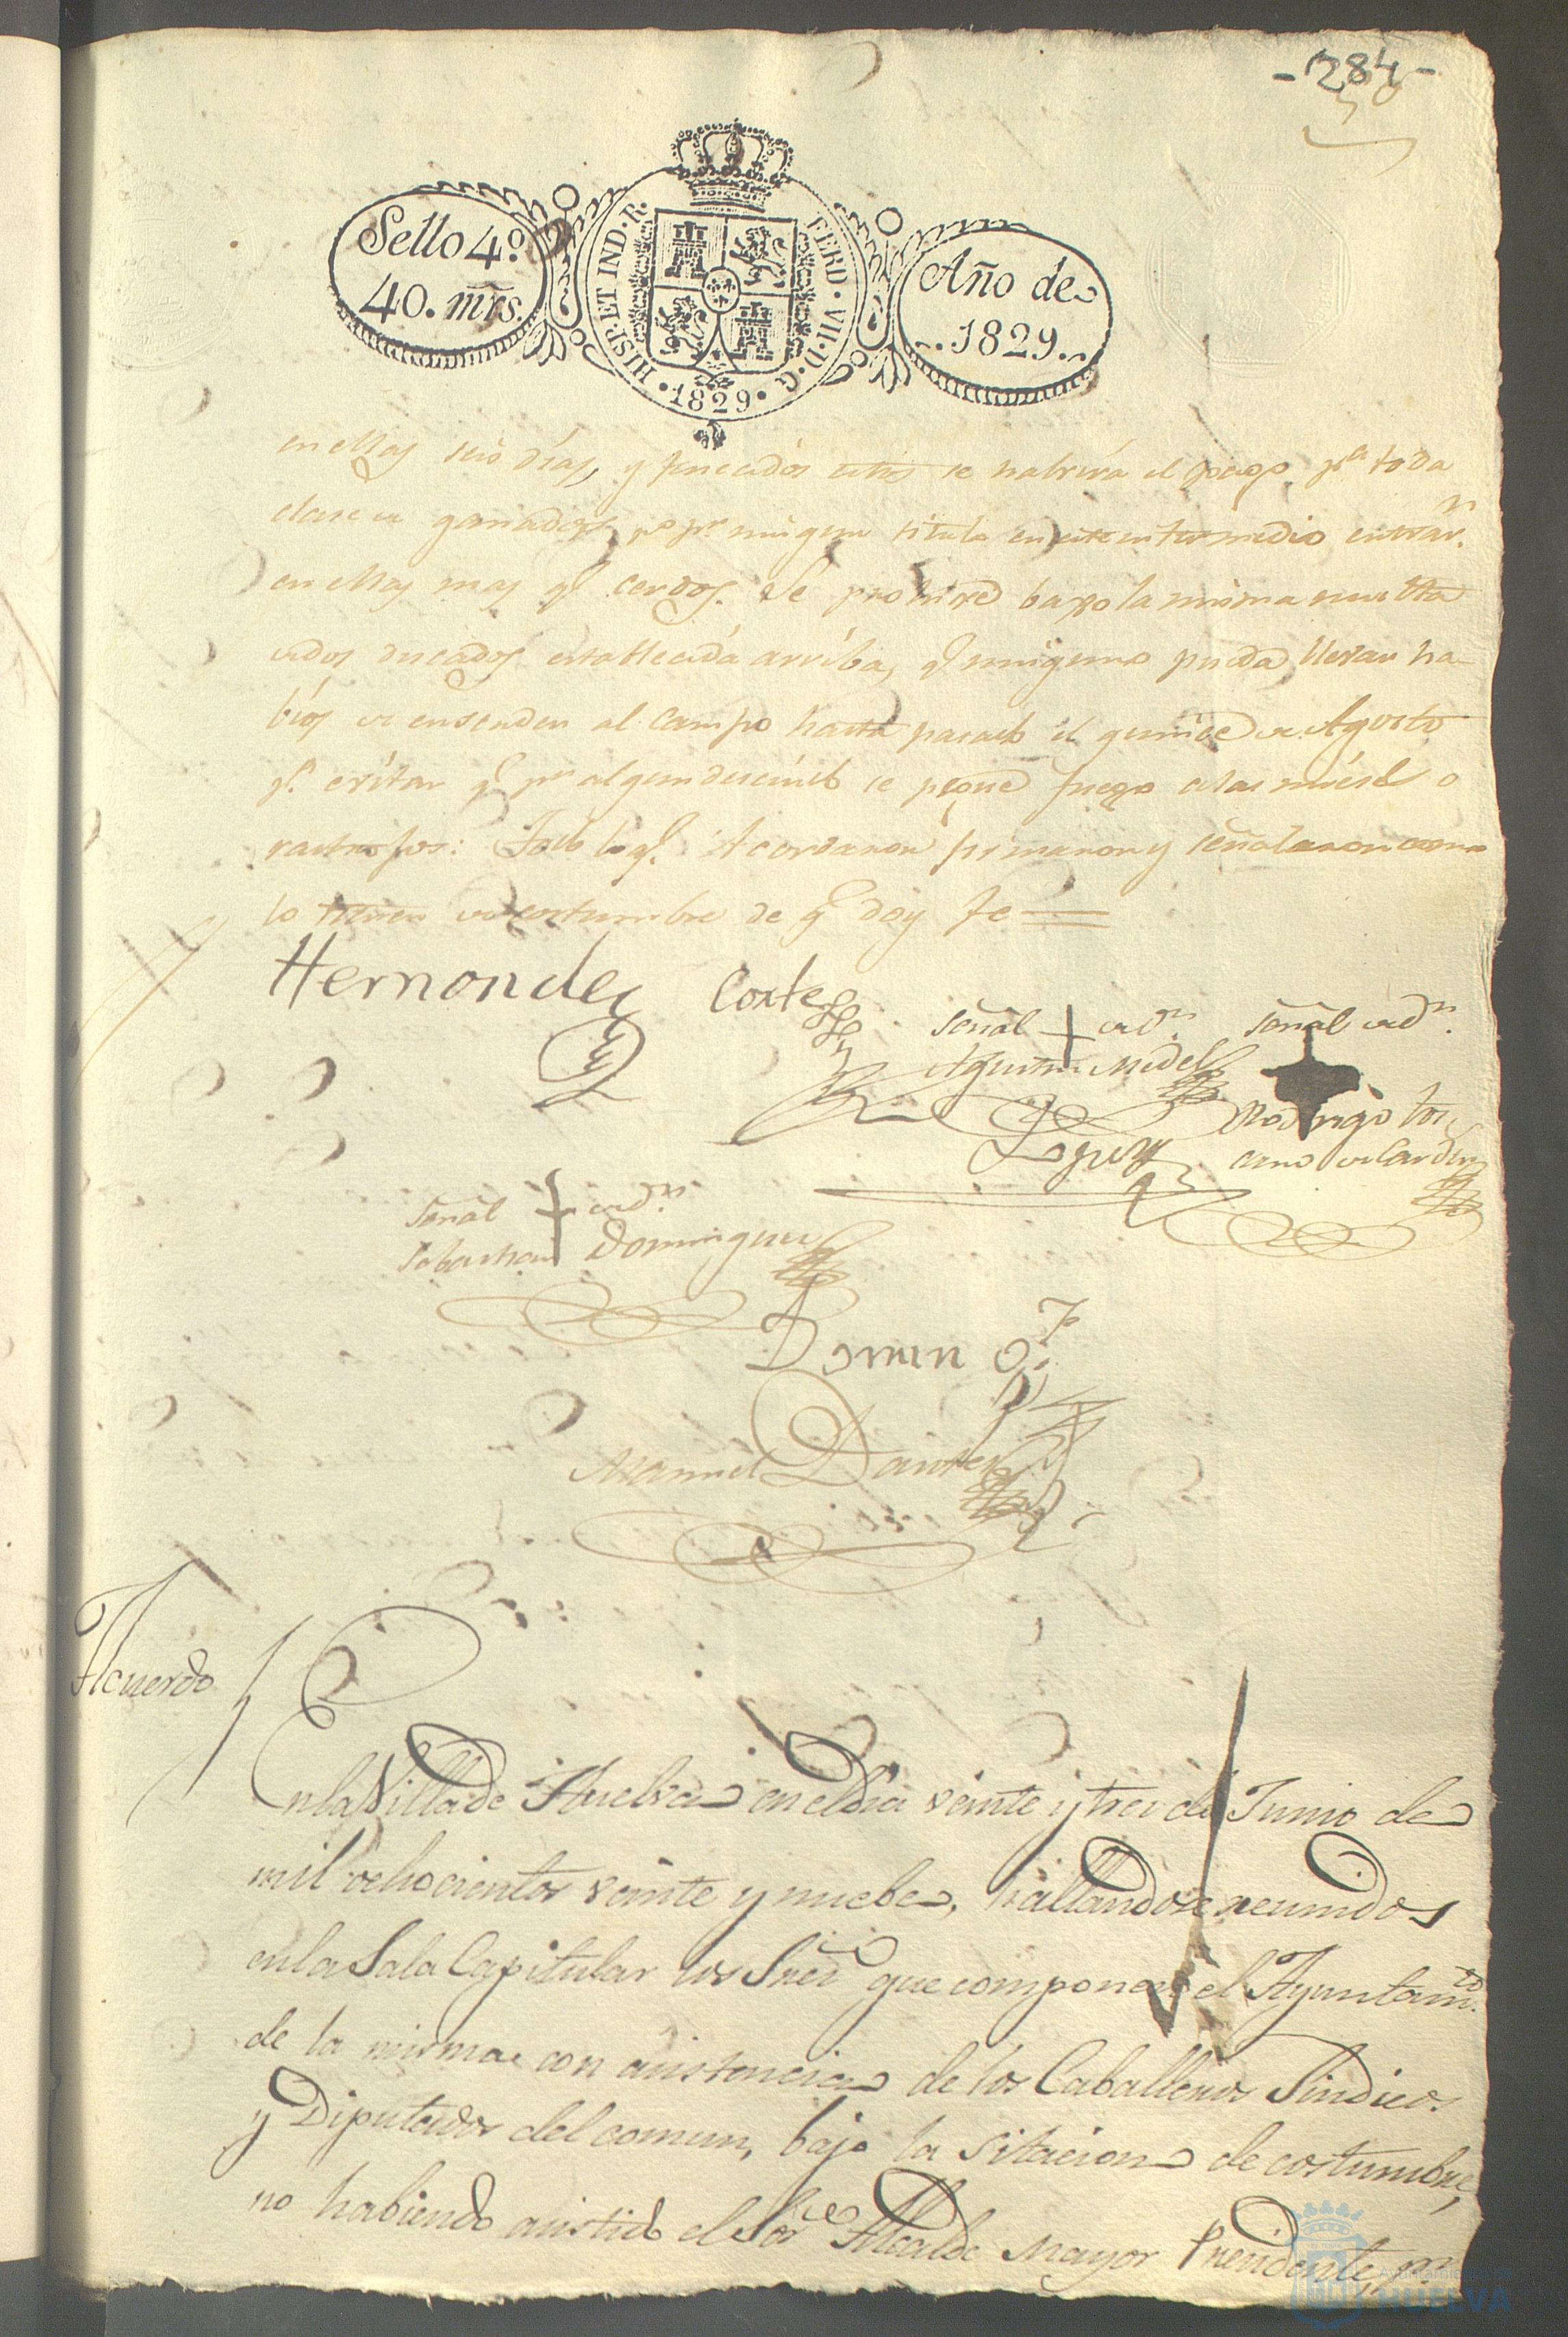 -284-
Sello 4º
40. mrs.
HISP. ET IND. R.
FERD. VII. D. G.
1829
Año de
1829.
en ellas seis días, y fenecidos estos se habrirá el pago pª toda
clase de ganados, pº pr. ningun titulo en este intermedio entrarn.
en ellas mas qe. cerdos. Se prohive bajo la misma multa
de dos ducados establecida arriba, qe. ninguno pueda llevar ha-
bíos de ensender al campo hasta pasado el quince de Agosto
pª. evitar qe. pr algun descuido se pegue fuego a las mieses o
rastrojos: Todo lo qe. Acordaron firmaron y señalaron como
lo tienen de costumbre de qe doy fe
Hernandez Cortes
señal de Dn. señal de Dn.
Agustin Medel
Rodrigo tos
Lopez cano de Carden
señal de Dn.
Sebastian Dominguez
Domin
Manuel
Acuerdo
En la Villa de Huelva en el dia veinte y tres de Junio de
mil ochocientos veinte y nuebe, hallandose reunidos
en la Sala Capitular los Sres que componen el Ayuntamto.
de la misma con asistencia de los Caballeros Sindicos
y Diputados del comun, bajo la sitacion de costumbre,
no habiendo asistido el Sor Alcalde Mayor Presidente,
Ayuntamiento de
HUELVA